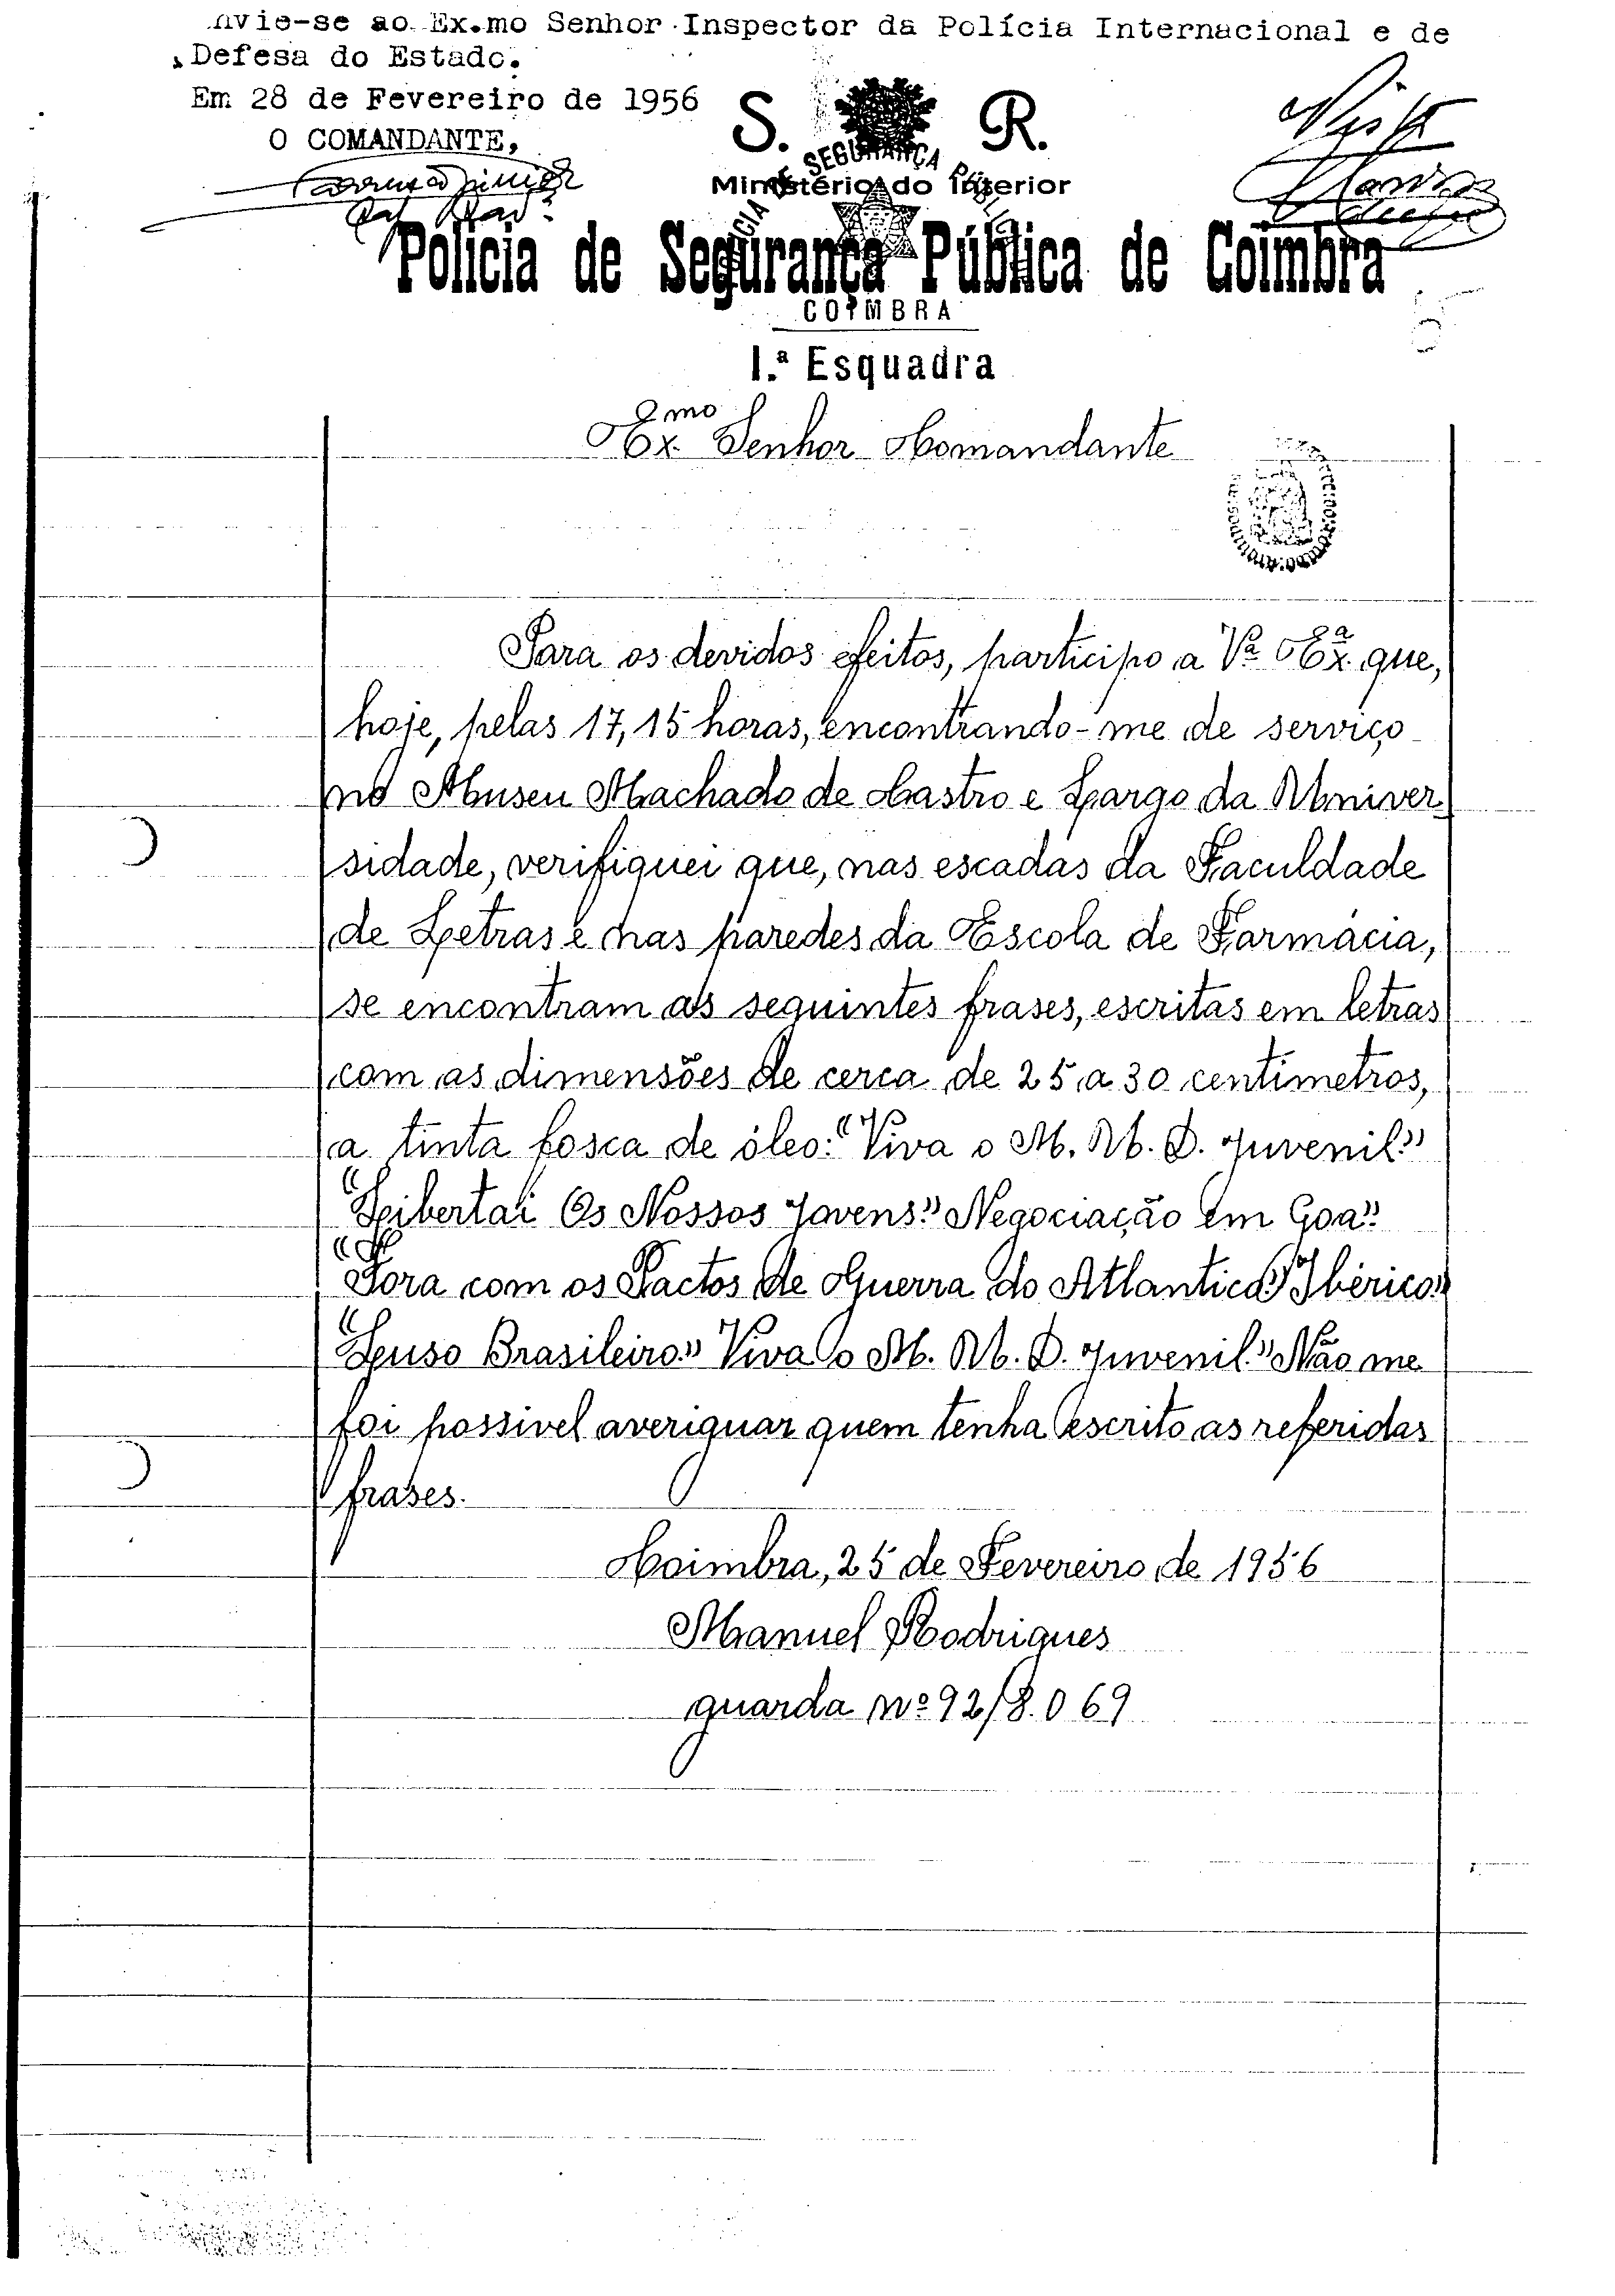 nvie-se ao Ex.mo Senhor Inspector da Polícia Internacional e de
Defesa do Estado.
Em 28 de Fevereiro de 1956
O COMANDANTE,
S. R.
Visto
Ministério do Interior
Polícia de Segurança Pública de Coimbra
COIMBRA
1.ª Esquadra
Ex.mo Senhor Comandante
Para os devidos efeitos, participo a Vª Ex.ª que,
hoje, pelas 17,15 horas, encontrando-me de serviço
no Museu Machado de Castro e Largo da Univer-
sidade, verifiquei que, nas escadas da Faculdade
de Letras e nas paredes da Escola de Farmácia,
se encontram as seguintes frases, escritas em letras
com as dimensões de cerca de 25 a 30 centímetros,
a tinta fosca de óleo: "Viva o M. U. D. Juvenil."
"Libertai Os Nossos Jovens." Negociação em Goa".
"Fora com os Pactos de Guerra do Atlantico" Ibérico"
"Luso Brasileiro." Viva o M. U. D. Juvenil." Não me
foi possivel averiguar quem tenha escrito as referidas
frases.
Coimbra, 25 de Fevereiro de 1956
Manuel Rodrigues
guarda nº 92/8.069